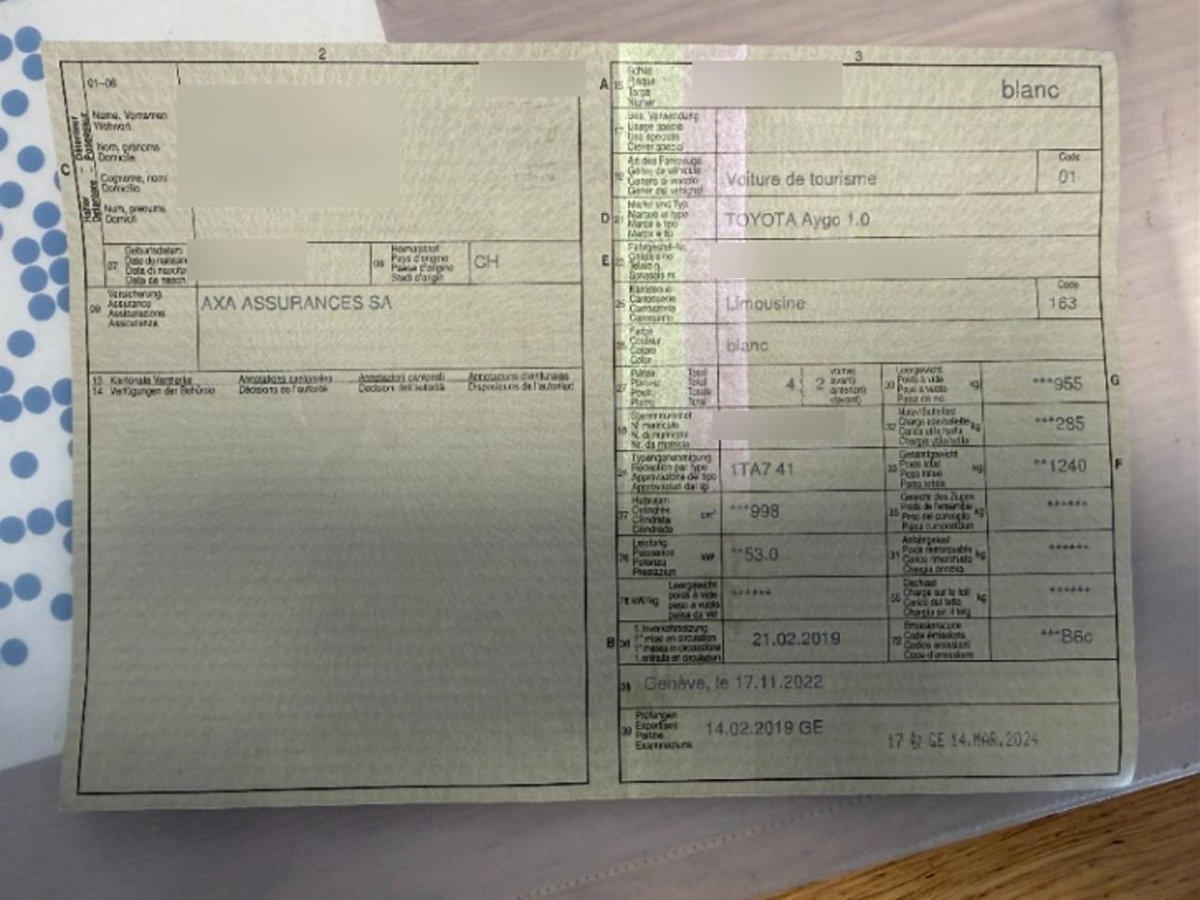 2
01-06
Name, Vornamen
Wohnort
Nom, prénoms
Domicile
Cognome, nomi
Domicilio
Num, prenums
Domicil
C
07
Geburtsdatum
Date de naissance
Data di nascita
Data da nasch.
08
Heimatstaat
Pays d'origine
Paese d'origine
Stadi d'origin
CH
09
Versicherung
Assurance
Assicurazione
Assicuranza
AXA ASSURANCES SA
13 Kantonale Vermerke Annotations cantonales Annotazioni cantonali Annotaziuns chantunalas
14 Verfügungen der Behörde Décisions de l'autorité Decisioni dell'autorità Disposiziuns da l'autoritad
3
A 15
Schild
Plaque
Targa
Numer
blanc
17
Bes. Verwendung
Usage spécial
Uso speciale
Diever spezial
Art des Fahrzeugs
Genre de véhicule
Genere di veicolo
Gener dal vehichel
Voiture de tourisme
Code
01
D 21
Marke und Typ
Marque et type
Marca e tipo
Marca e tip
TOYOTA Aygo 1.0
E 23
Fahrgestell-Nr.
Châssis no
Telaio n.
Schassis nr.
25
Karosserie
Carrosserie
Carrozzeria
Carossaria
Limousine
Code
163
26
Farbe
Couleur
Colore
Color
blanc
27
Plätze Total
Places Total
Posti Totale
Plazs Total
4
2
vorne
avant
anteriori
davant
30
Leergewicht
Poids à vide
Peso a vuoto
kg
***955
G
18
Stammnummer
N° matricule
N. di matricola
Nr. da matricla
32
Nutz-/Sattellast
Charge utile/sellette
Carico utile/sella
Chargia utila/sella
kg
***285
24
Typengenehmigung
Réception par type
Approvazione del tipo
Approvaziun dal tip
1TA7 41
33
Gesamtgewicht
Poids total
Peso totale
Paisa totala
kg
**1240
F
37
Hubraum
Cylindrée
Cilindrata
Cilindrada
cm³
***998
35
Gewicht des Zuges
Poids de l'ensemble
Peso del convoglio
Paisa cumposiziun
kg
******
76
Leistung
Puissance
Potenza
Prestaziun
kW
**53.0
31
Anhängelast
Poids remorquable
Carico rimorchiato
Chargia annexa
kg
******
78 kW/kg
Leergewicht
poids à vide
peso a vuoto
paisa da vid
******
55
Dachlast
Charge sur le toit
Carico sul tetto
Chargia sin il tetg
kg
******
B 36
1. Inverkehrsetzung
1re mise en circulation
1a messa in circolazione
1. entrada en circulaziun
21.02.2019
72
Emissionscode
Code émissions
Codice emissioni
Code d'emissiuns
***B6c
38
Genève, le 17.11.2022
39
Prüfungen
Expertises
Perizie
Examinaziuns
14.02.2019 GE
17 GE 14.MAR.2024